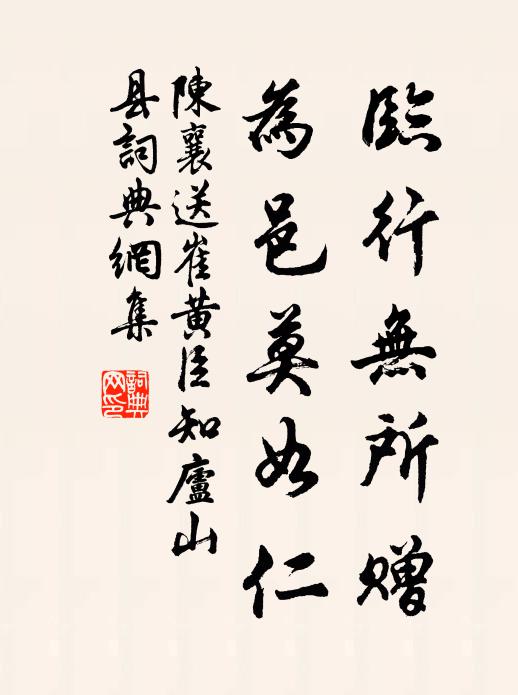 臨行無所贈
為邑莫如仁
陳襄送崔黄臣知廬山
县詞典網集
詞典网印